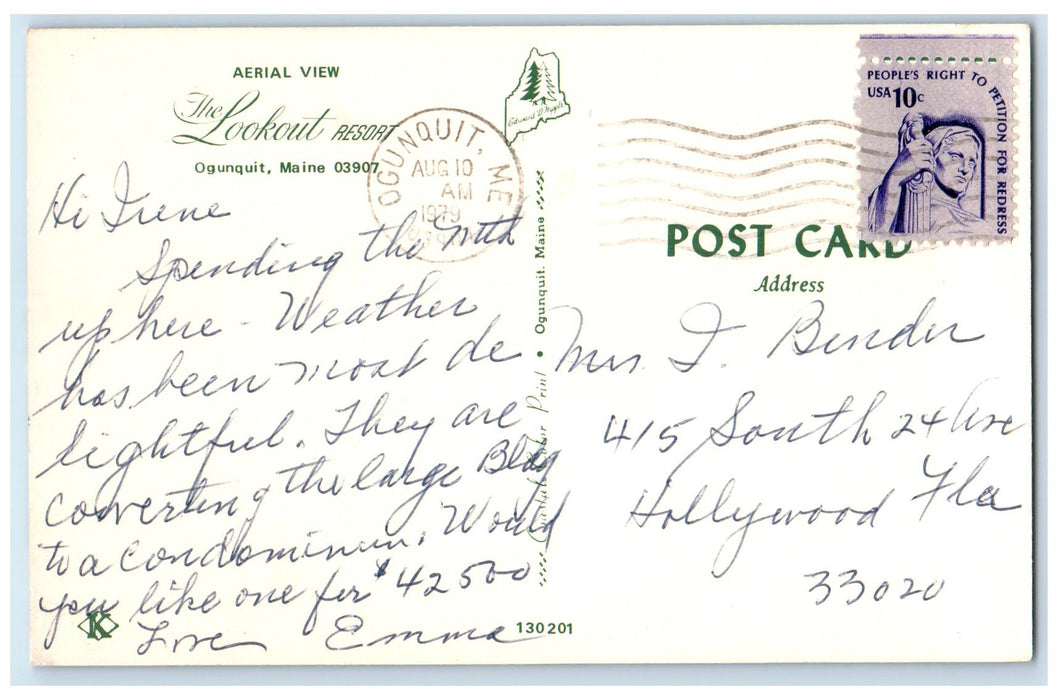 AERIAL VIEW
The Lookout RESORT
Ogunquit, Maine 03907
Hi Irene
Spending the mth
up here - Weather
has been most de
lightful. They are
converting the large Bldg
to a condominum. Would
you like one for $42500
Love Emma
K
130201
Ogunquit, Maine
OGUNQUIT, ME
AUG 10
AM
1979
PEOPLE'S RIGHT TO PETITION FOR REDRESS
USA 10c
POST CARD
Address
Mrs. I. Bender
415 South 24 Ave
Hollywood Fla
33020